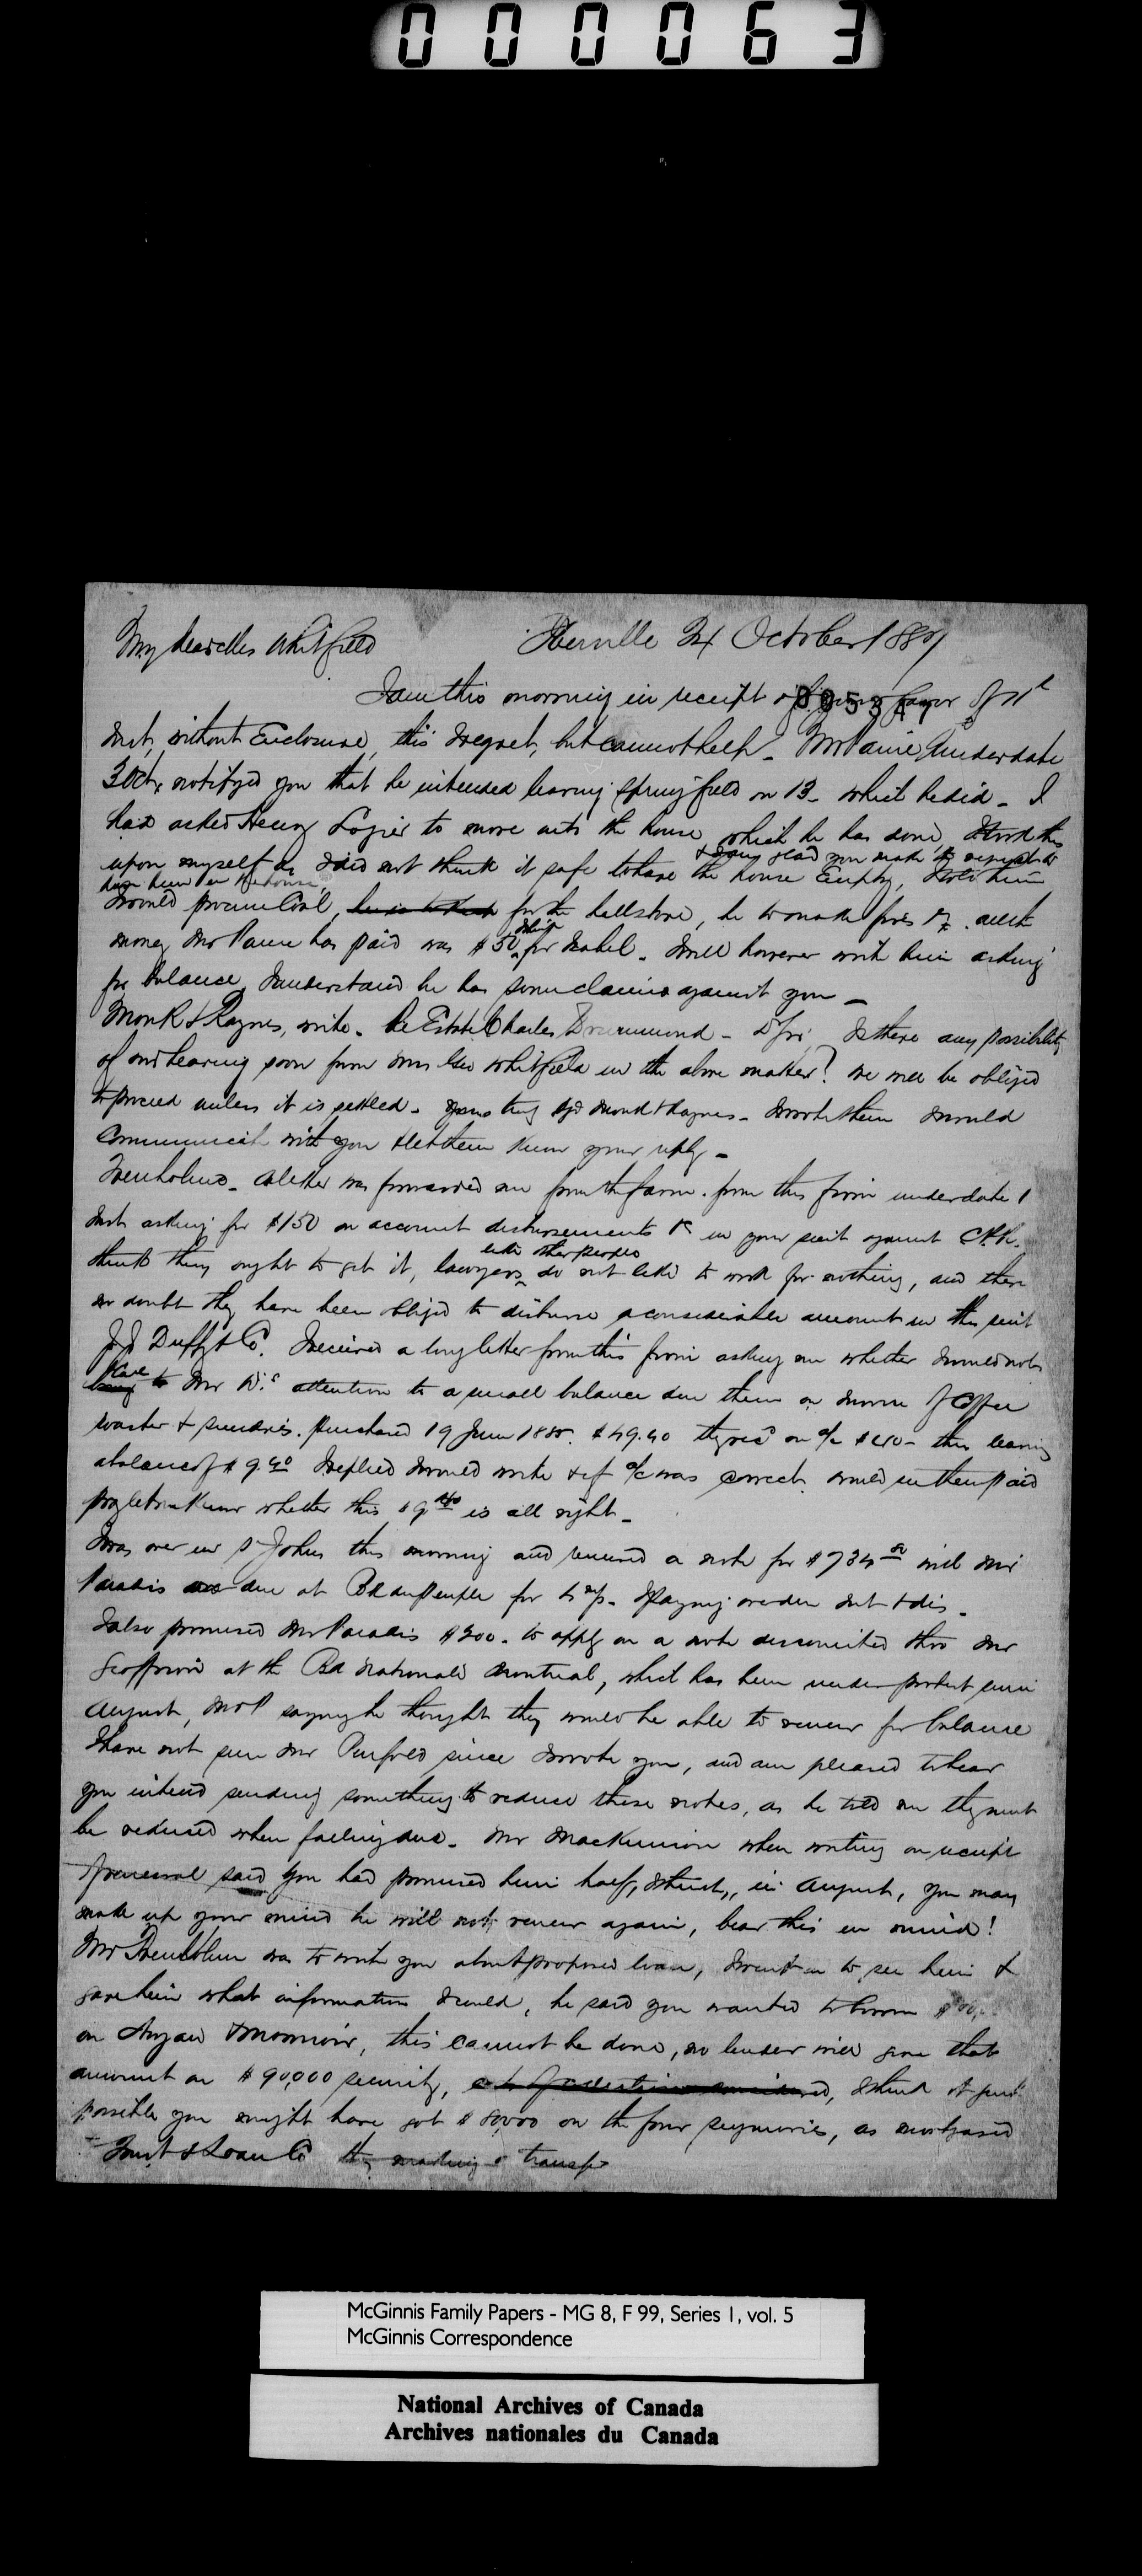 000063
My dear Mrs Whitfield Iberville 24 October 1887
I am this morning in receipt of your favor of 11th
Inst, without Enclosure, this I regret, but cannot help - Mr Paine under date
3 Octr notifyed you that he intended leaving Springfield on 13 - which he did - I
had asked Henry Lozier to move into the house which he has done, I took this
upon myself as I did not think it safe to have the house Empty, I told him
& I am glad you make the request to
have him in the house,
I would procure Coal, for the hall stove, he to make fires &c. all the
money Mr Paine has paid was $50 for Isabel - I will however write him asking
I think
for balance, I understand he has some claims against you -
Monk & Raynes, write - Re Estate Charles Drummond - D Sir, Is there any possibility
of our hearing soon from Mrs Geo Whitfield in the above matter? We will be obliged
to proceed unless it is settled - Yours truly Sgd Monk & Raynes - I wrote them I would
Communicate with you & let them know your reply -
Trenholme - A letter was forwarded me from the farm - from this firm under date 1
Inst asking for $150 on account disbursements &c in your suit against C.P.R.
I think they ought to get it, lawyers like other people do not like to work for nothing, and there
no doubt they have been obliged to disburse a considerable amount in this suit
J J Duffy & Co. I received a long letter from this firm asking me whether I would not
call Mr W's attention to a small balance due them on Coffee
roaster & sundries. purchased 19 June 1885. $49.40 they recd on a/c $40 - thus leaving
a balance of $9.40 I replied I would write & if a/c was correct, would see them paid
pray let me know whether this $9.40 is all right -
I was over in St Johns this morning and renewed a note for $734 with Mr
Paradis due at Bk du Peuple for I paying over due Int & dis -
I also promised Mr Paradis $200 - to apply on a note discounted thro Mr
Geoffrion at the Bk Nationale Montreal, which has been under protest since
August, Mr P saying he thought they would be able to renew for balance
I have not seen Mr Penfold since I wrote you, and am pleased to hear
you intend sending something to reduce these notes, as he told me they must
be reduced when falling due - Mr MacKinnon when writing on receipt
of renewal said you had promised him half, I think, in August, you may
make up your mind he will not renew again, bear this in mind!
Mr Trenholme was to write you about proposed loan, I went in to see him &
gave him what information I could, he said you wanted to borrow
on & Monnoir, this cannot be done, no lender will give that
amount on $90,000 security, I think it just
possible you might have got $80,000 on the four seigniories, as mortgaged
Trust & Loan Co the making a transfer
McGinnis Family Papers - MG 8, F 99, Series 1, vol. 5
McGinnis Correspondence
National Archives of Canada
Archives nationales du Canada